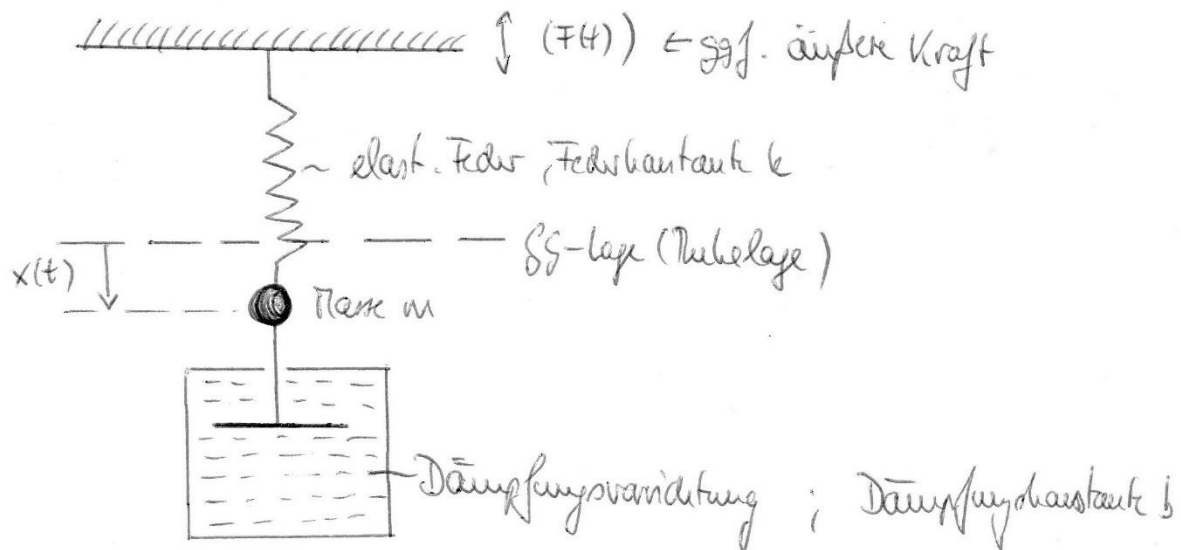 (F(t)) ← ggf. äußere Kraft
elast. Feder, Federkonstante k
GG-Lage (Ruhelage)
x(t)
Masse m
Dämpfungsvorrichtung ; Dämpfungskonstante b